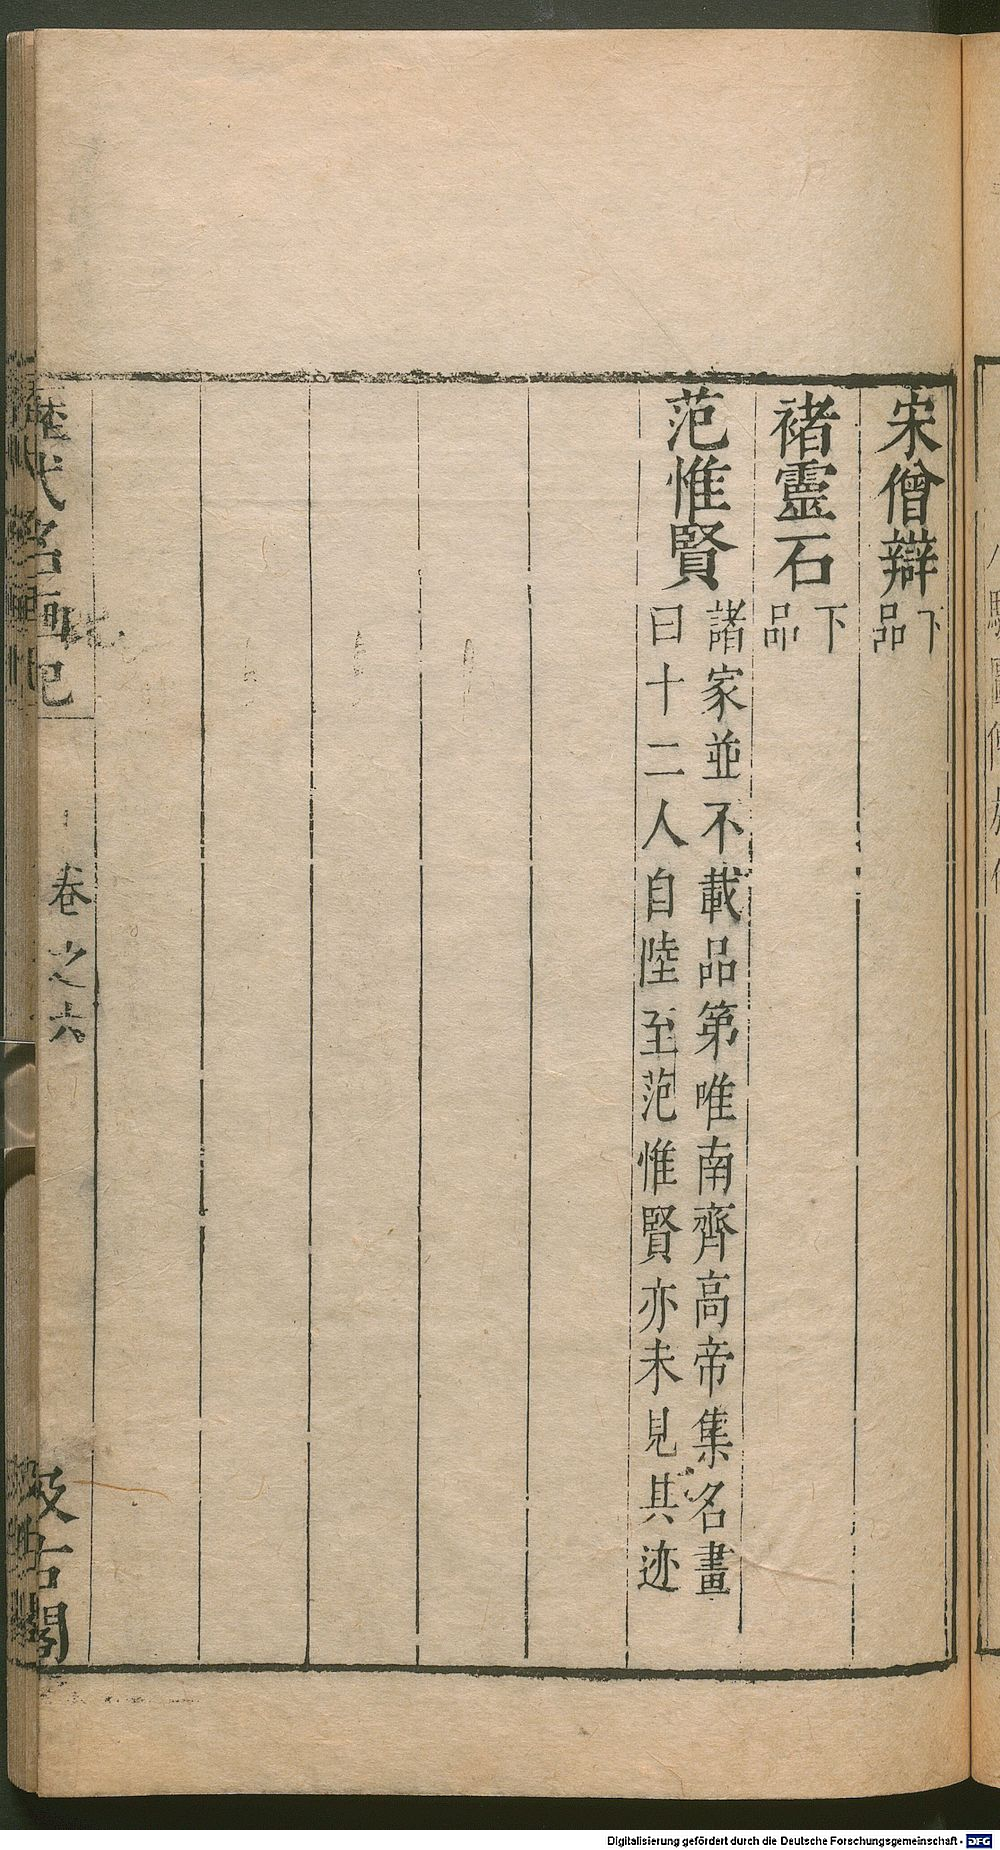 宋僧辯下品
褚靈石下品
范惟賢諸家並不載品第唯南齊高帝集名畫
曰十二人自陸至范惟賢亦未見其迹
歷代名畫記
卷之六
汲古閣
Digitalisierung gefördert durch die Deutsche Forschungsgemeinschaft - DFG